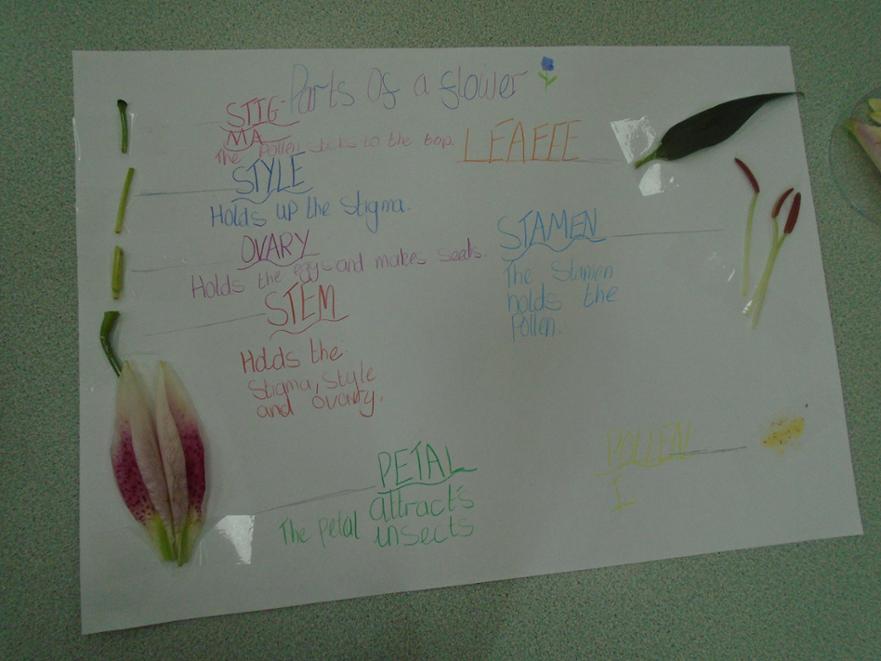 Parts Of a flower
STIG-
MA
The Pollen sticks to the top.
LEAFFE
STYLE
Holds up the Stigma.
OVARY
Holds the eggs and makes seeds.
STAMEN
The Stamen
holds the
Pollen.
STEM
Holds the
Stigma, Style
and ovary.
PETAL
The petal attracts
insects
POLLEN
I